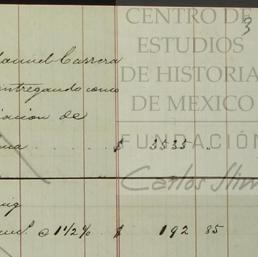 CENTRO DE
3
ESTUDIOS
DE HISTORIA
DE MEXICO
FUNDACIÓN
Carlos Slim
Manuel Carrera
entregando como
de
$ 3535
@ 1½% $ 192 85